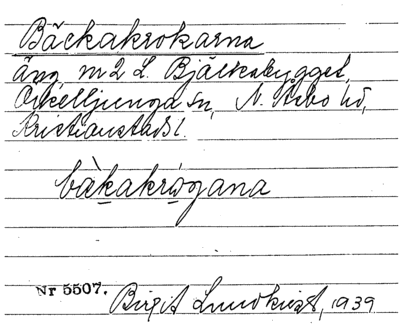 Bäckakrokarna
äng m2 L. Bjälkabygget,
Örkelljunga sn, N. Åsbo hd,
Kristianstads l.
bàkakrògana
Nr 5507. Birgit Lundkvist, 1939